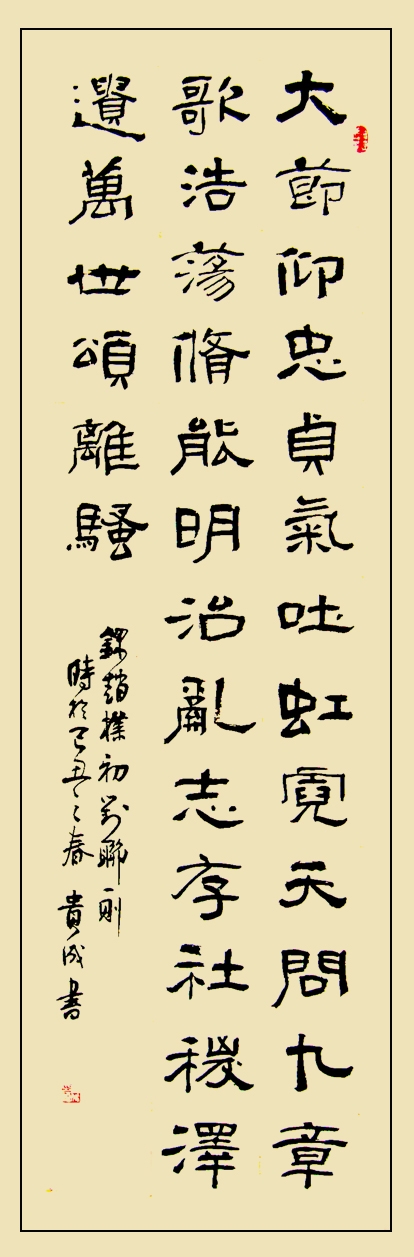 大節仰忠貞氣吐虹霓天問九章
歌浩蕩脩能明治亂志存社稷澤
遺萬世頌離騷
錄趙樸初對聯一則
時於己丑之春 貴成書